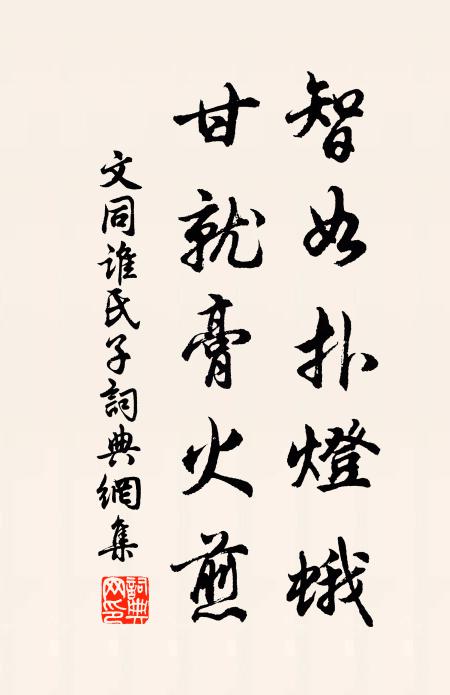 智如扑燈蛾
甘就膏火煎
文同誰氏子詞典網集
詞典網印